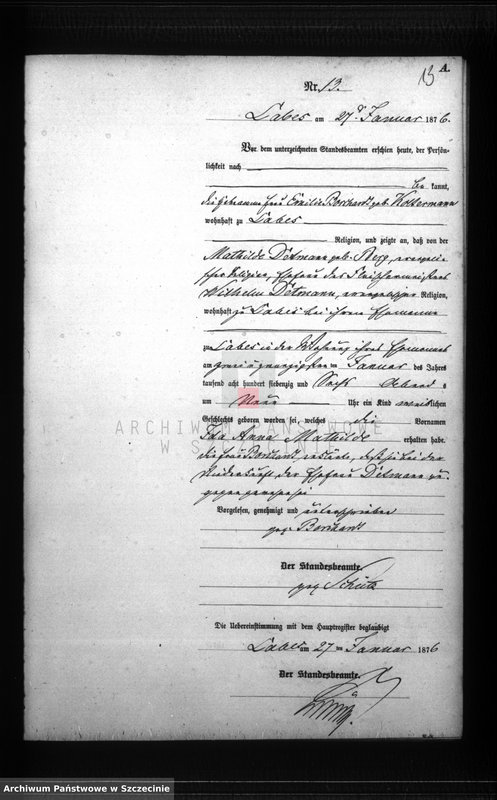 13
A.
Nr. 13.
Labes am 27ten Januar 1876.
Vor dem unterzeichneten Standesbeamten erschien heute, der Persön-
lichkeit nach
be kannt,
die Hebamme Frau Emilie Borchardt geb. Woltermann
wohnhaft zu Labes
Religion, und zeigte an, daß von der
Mathilde Ditmann geb. Berg, evangeli-
scher Religion, Ehefrau des Fleischermeisters
Wilhelm Ditmann, evangelischer Religion,
wohnhaft zu Labes bei ihrem Ehemanne
zu Labes in der Wohnung ihres Ehemannes
am zwei u zwanzigsten ten Januar des Jahres
tausend acht hundert siebenzig und Sechs Abend s
um Neun Uhr ein Kind weiblichen
Geschlechts geboren worden sei, welches die Vornamen
Ida Anna Mathilde erhalten habe.
die Frau Borchardt erklärte, daß sie bei der
Niederkunft der Ehefrau Ditmann zu-
gegen gewesen sei
Vorgelesen, genehmigt und unterschrieben
gez. Borchardt
Der Standesbeamte.
gez. Schütz
Die Uebereinstimmung mit dem Hauptregister beglaubigt
Labes am 27 ten Januar 1876
Der Standesbeamte.
ARCHIWUM PAŃSTWOWE
W SZCZECINIE
Archiwum Państwowe w Szczecinie